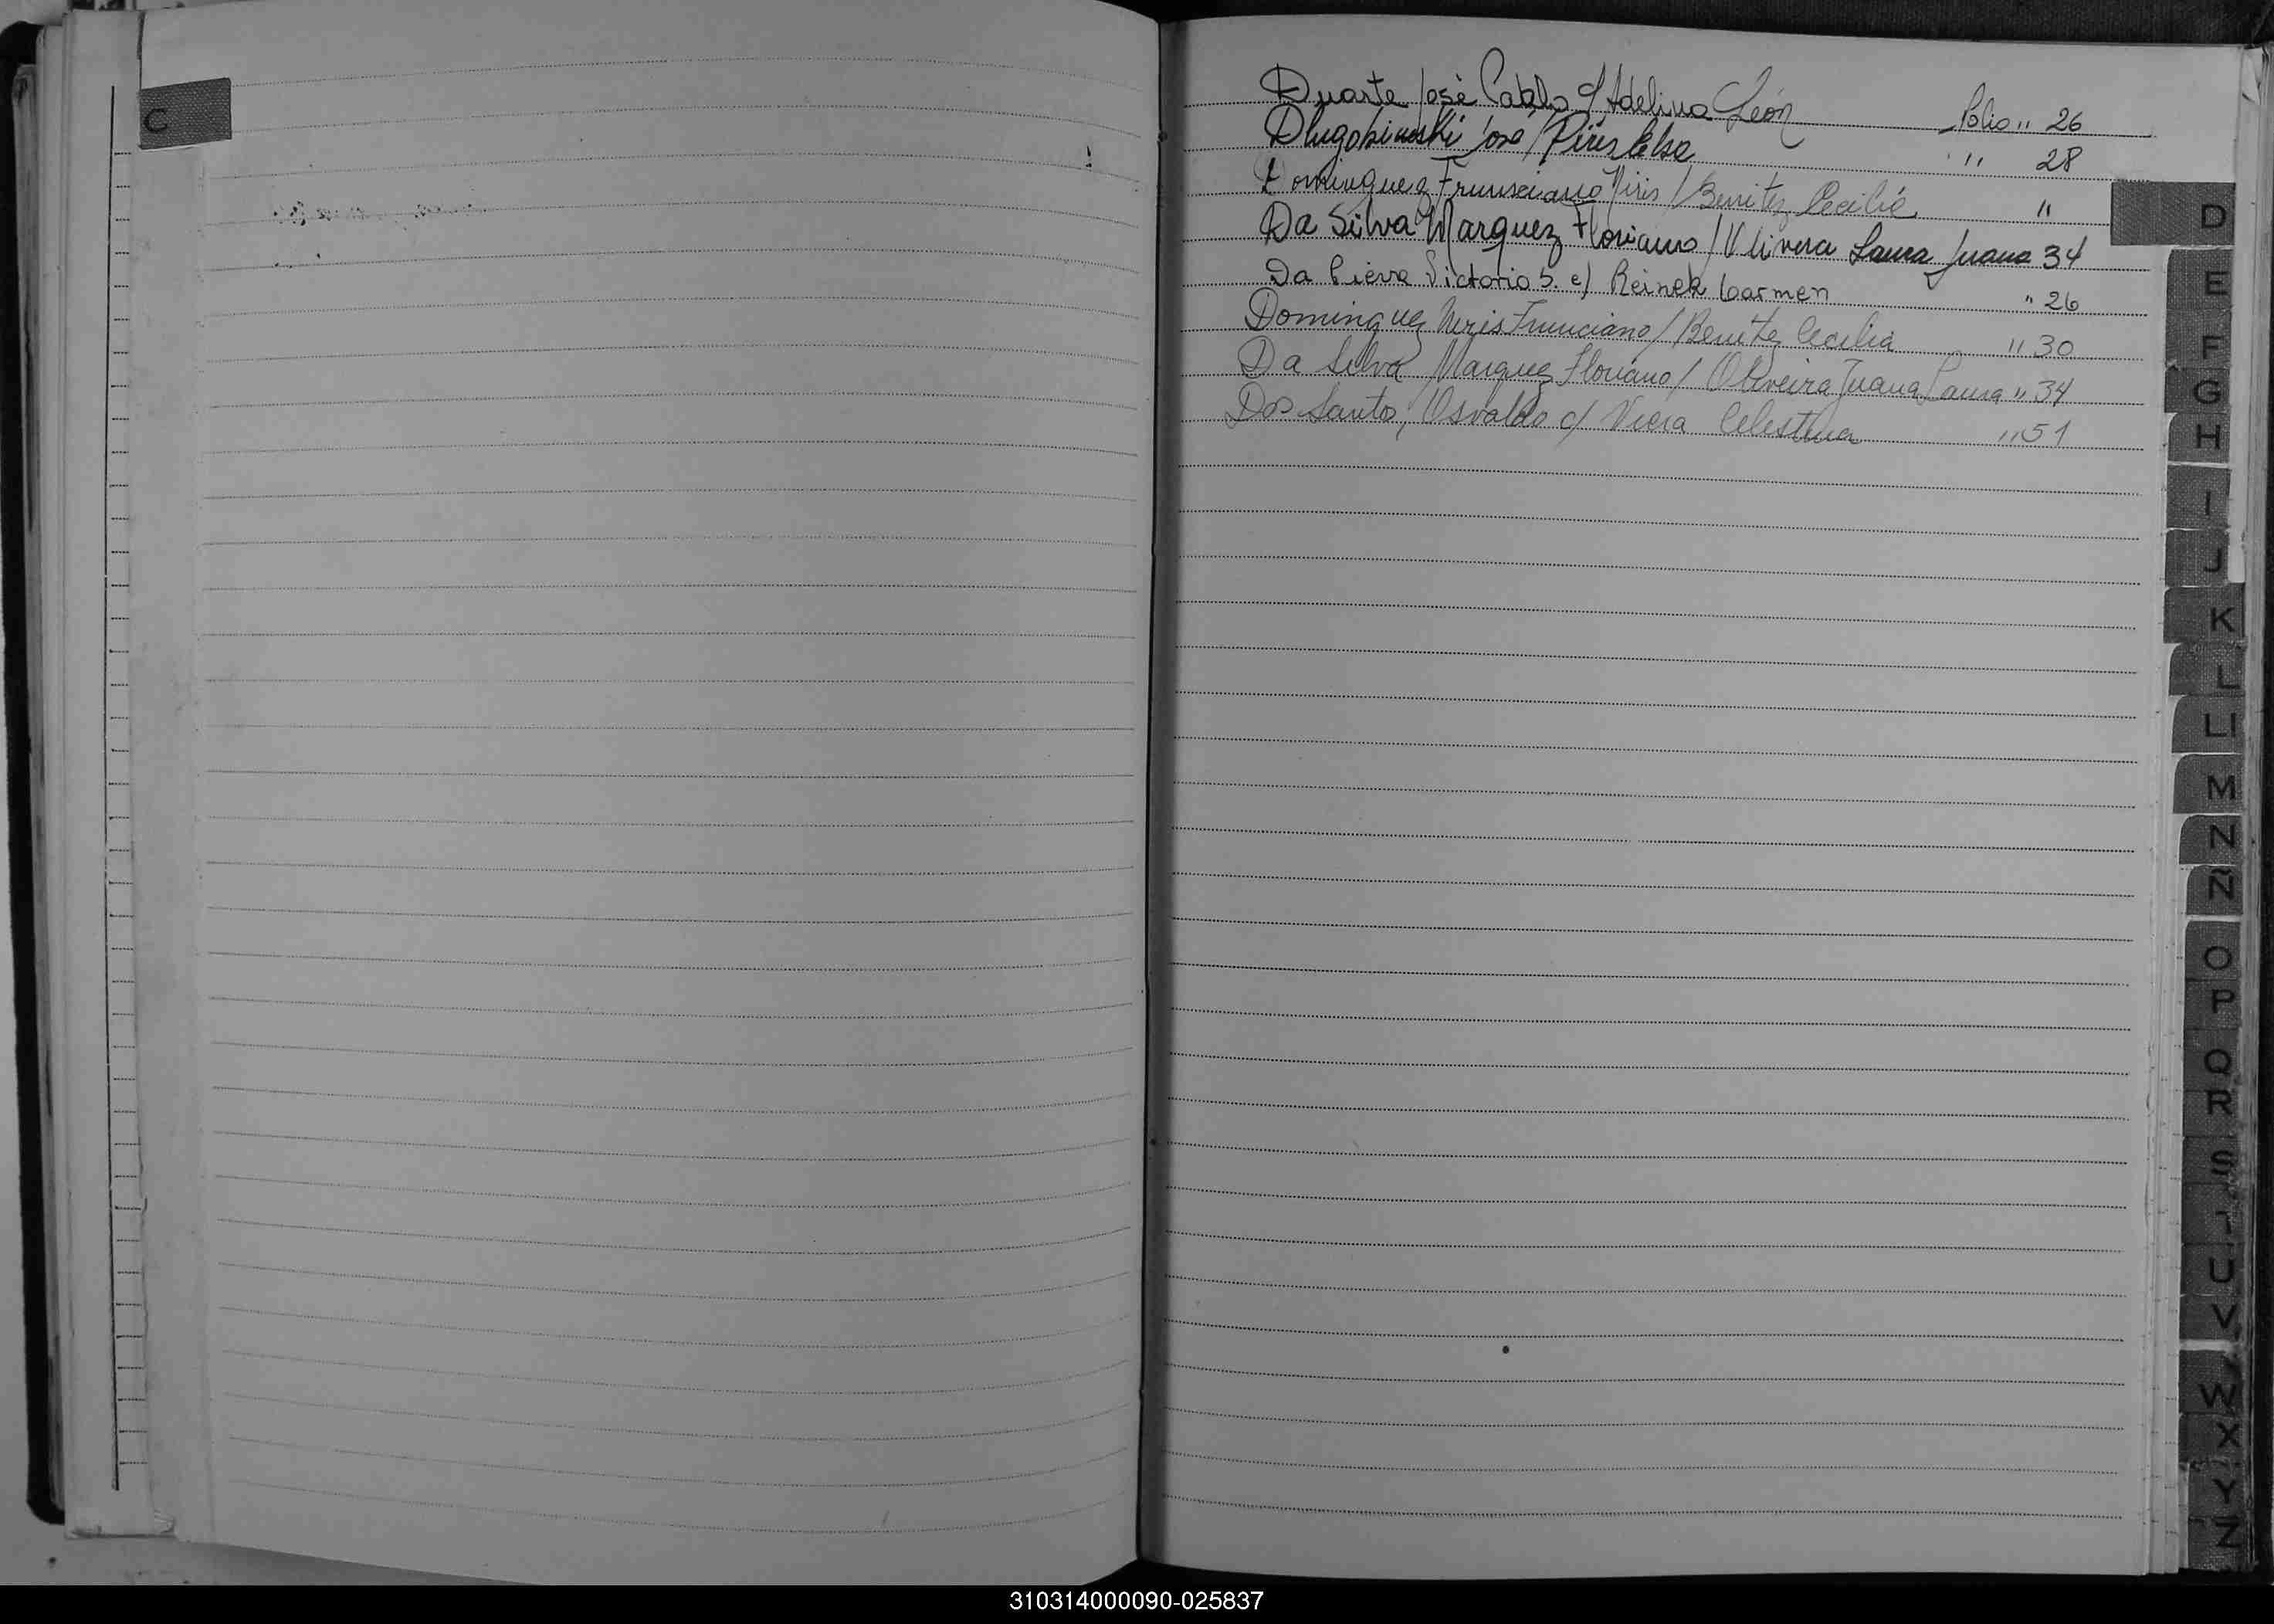 C
Duarte José Pablo c/ Adelina León Folio " 26
José / Piris Elsa " 28
Dominguez Frunsciano Niris / Benitez Cecilia "
Da Silva Marquez Floriano / Olivera Laura Juana 34
Da Victorio S. c/ Reinek Carmen " 26
Dominguez Neris Frunciano / Benitez Cecilia " 30
Da Silva Marquez Floriano / Oliveira Juana Laura " 34
Dos Santos, Osvaldo c/ Viera Celestina " 51
D
E
F
G
H
I
J
K
L
Ll
M
N
Ñ
O
P
Q
R
S
T
U
V
W
X
Y
Z
310314000090-025837